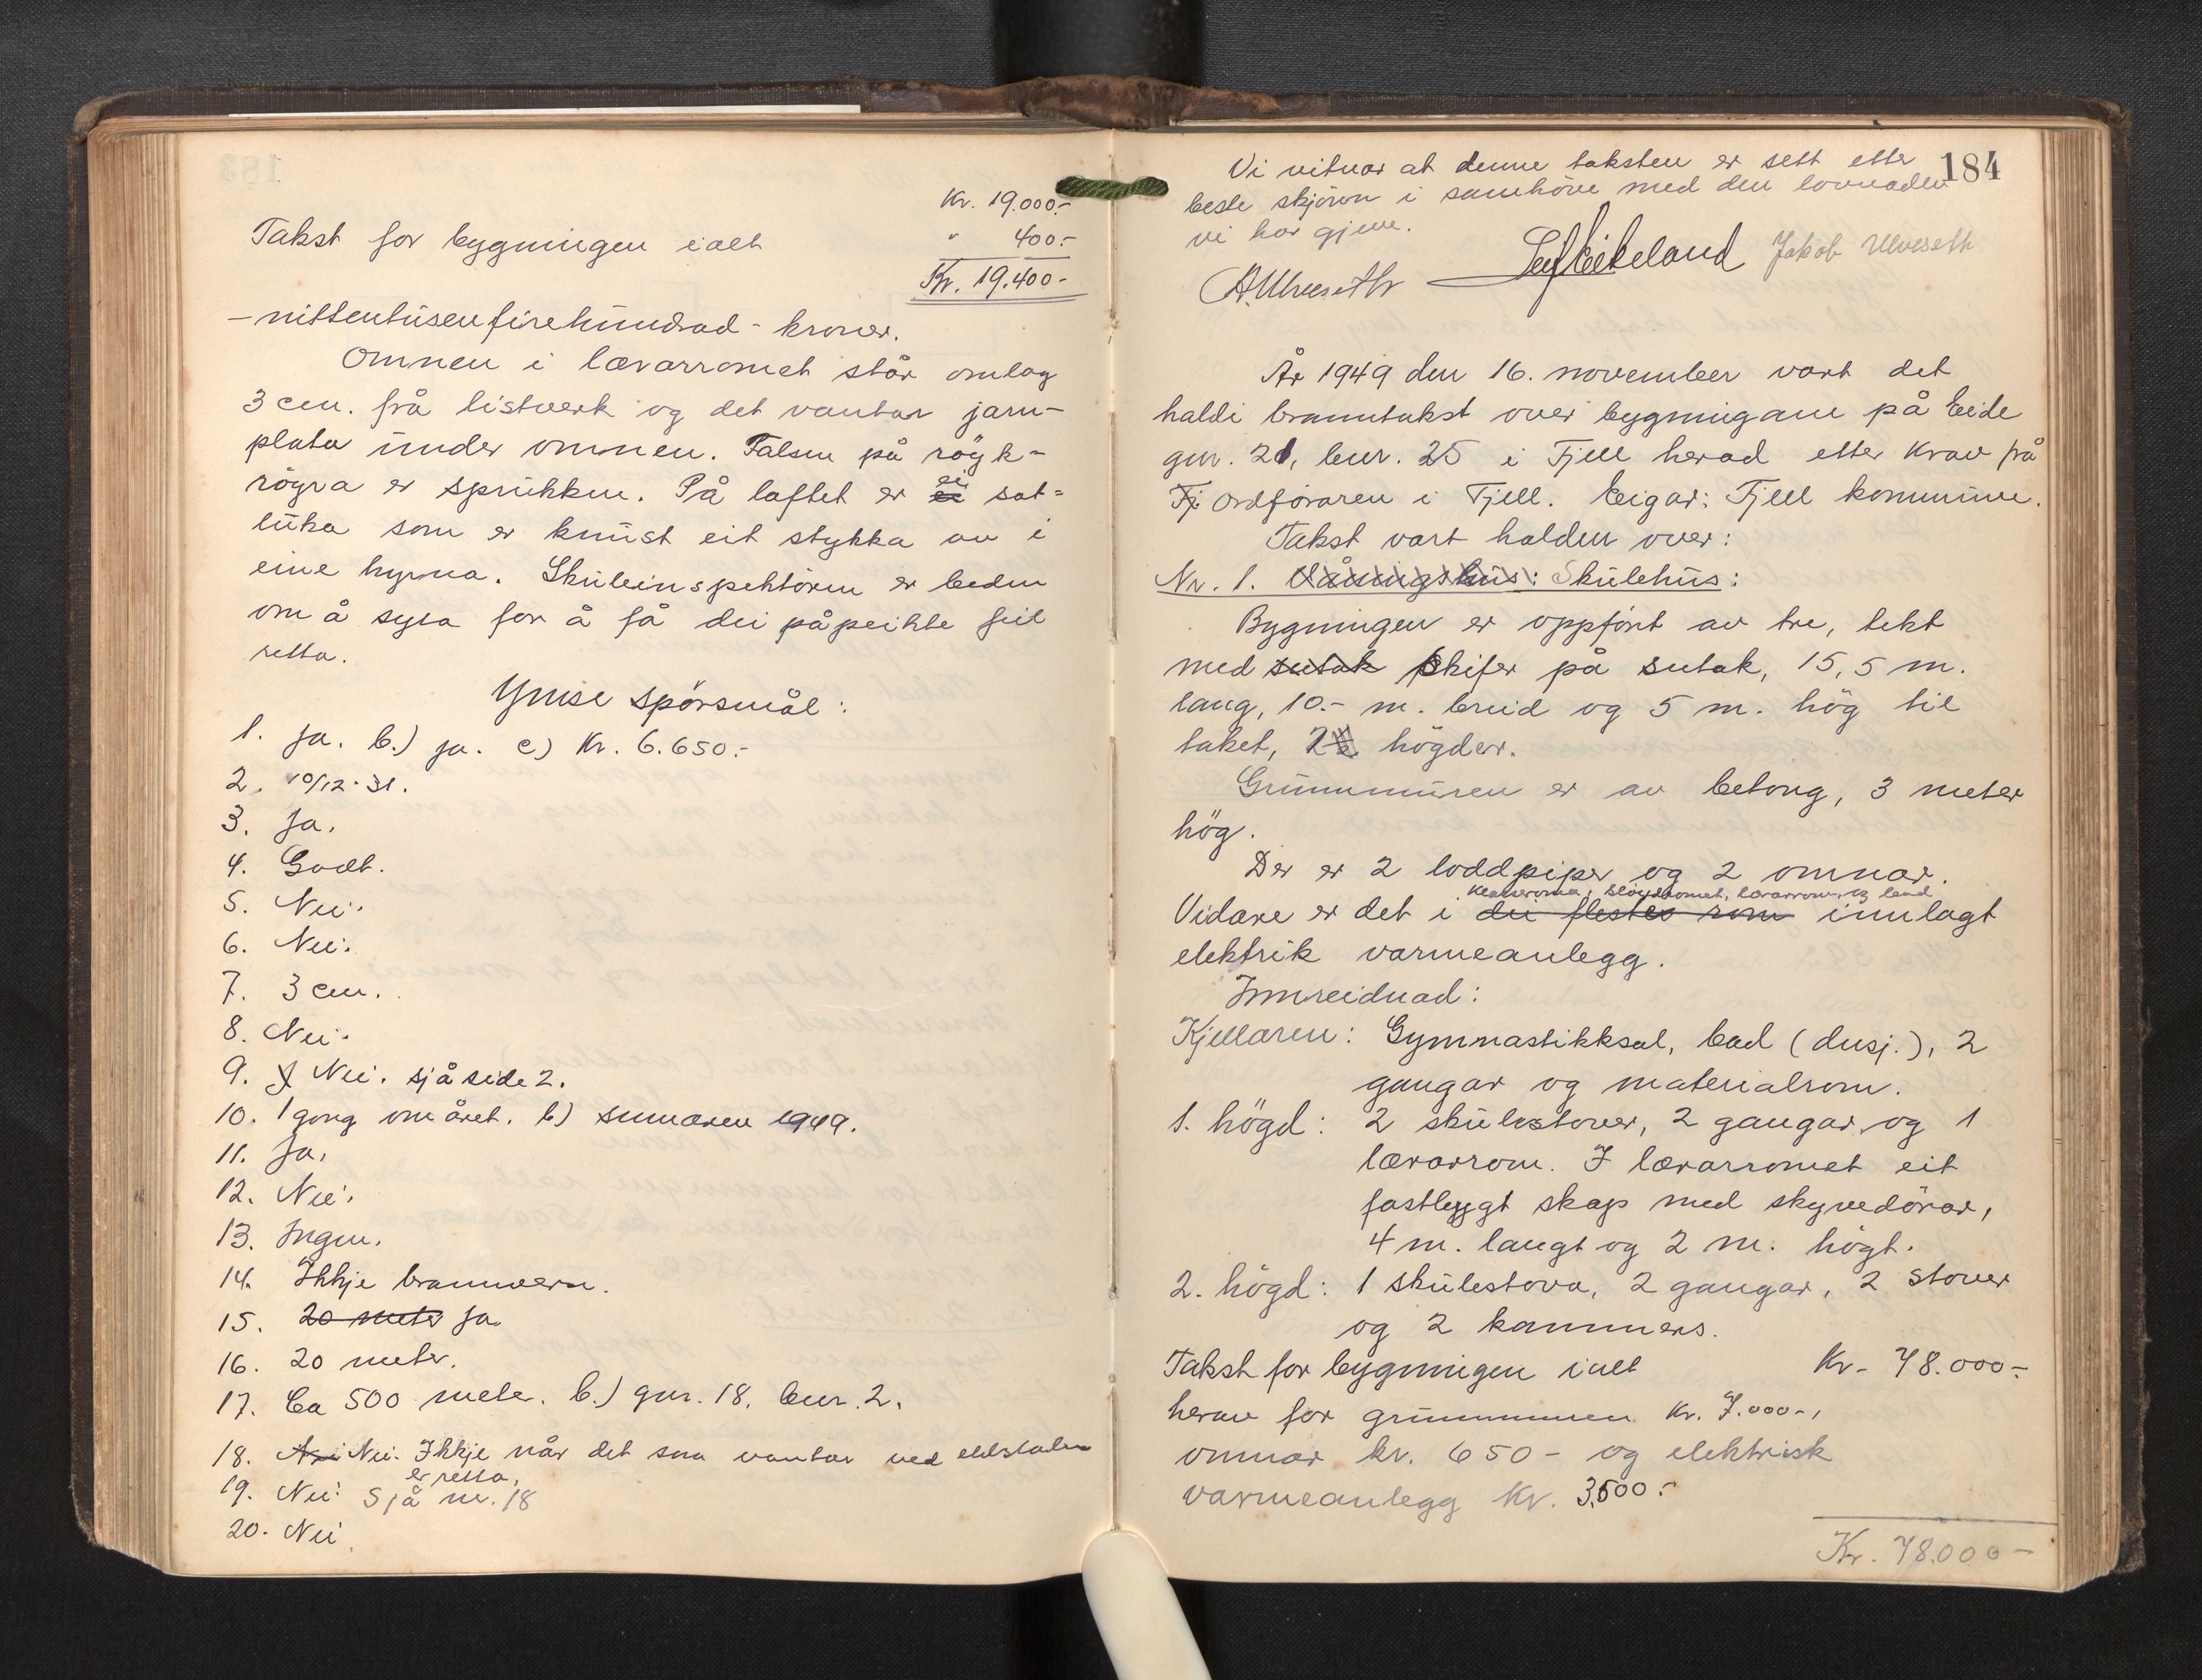 Kr. 19.000.-
Takst for bygningen ialt " 400.-
Kr. 19.400-
- nittentusenfirehundrad - kroner.
Omnen i lærarromet står omlag
3 cm. frå listverk og det vantar jarn-
plata under omnen. Falsen på røyk-
røyra er sprukken. På loftet er ei ei sot-
luka som er knust eit stykka av i
eine hyrna. Skuleinspektören er beden
om å syta for å få dei påpeikte feil
retta.
Ymse spörsmål:
1. Ja. b.) ja. c) Kr. 6.650.-
2. 10/12-31.
3. Ja.
4. Godt.
5. Nei.
6. Nei.
7. 3 cm.
8. Nei.
9. J Nei. sjå side 2.
10. 1 gong om året. b) sumaren 1949.
11. Ja.
12. Nei.
13. Ingen.
14. Ikkje brannvern.
15. 20 meter Ja.
16. 20 meter.
17. Ca 500 meter. b.) gnr. 18, bnr. 2.
18. Nei Nei. Ikkje når det som vantar ved eldstaden
er retta.
19. Nei Sjå nr. 18
20. Nei
184
Vi vitnar at denne taksten er sett etter
beste skjönn i samhöve med den lovnaden
vi har gjeve.
A. Ulveseth Leif Eikeland Jakob Ulveseth
År 1949 den 16. november vart det
haldi branntakst over bygningane på Eide
gnr. 21, bnr. 25 i Fjell herad etter krav frå
Fj. ordföraren i Fjell. Eigar: Fjell kommune.
Takst vart halden over:
Nr. 1. Våningshus: Skulehus:
Bygningen er oppfört av tre, tekt
med sutak skifer på sutak, 15,5 m.
lang, 10.- m. breid og 5 m. hög til
taket, 2 högder.
Grunnmuren er av betong, 3 meter
hög.
Der er 2 loddpiper og 2 omnar.
klasseroma, sløydromet, lærarrom, og bad
Vidare er det i dei flestes rom innlagt
elektrik varmeanlegg.
Innreidnad:
Kjellaren: Gymnastikksal, bad (dusj.), 2
gangar og materialrom.
1. högd: 2 skulestover, 2 gangar og 1
lærarrom. I lærarromet eit
fastbyggt skap med skyvedörar,
4 m. langt og 2 m. högt.
2. högd: 1 skulestova, 2 gangar, 2 stover
og 2 kammers.
Takst for bygningen ialt Kr. 78.000.-
herav for grunnmuren kr. 7.000-,
omnar kr. 650- og elektrisk
varmeanlegg kr. 3.500.-
Kr. 78.000-